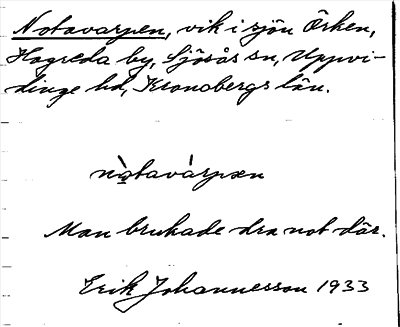 Notavarpen, vik i sjön Örken,
Hagreda by, Sjösås sn, Uppvi-
dinge hd, Kronobergs län.
nò̤tavàrpæn
Man brukade dra not där.
Erik Johannesson 1933